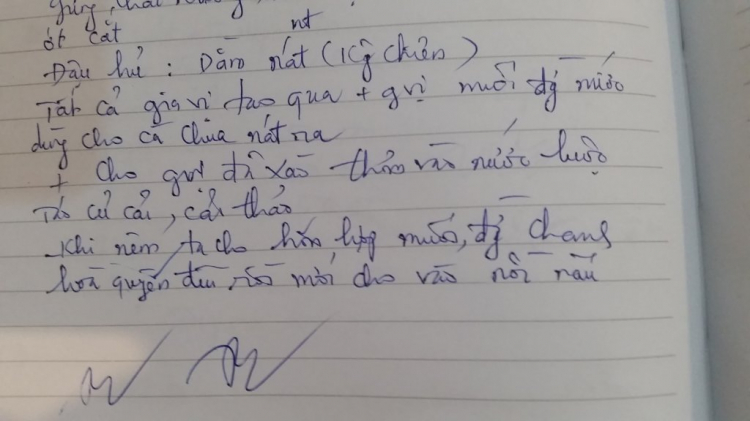 gừng, thái
ớt cắt nt
Đậu hủ : Dầm nát (Kg chiên)
Tất cả gia vị tao qua + gvị muối đg nước
dừg cho cà chua nát ra
+ cho gvị đã xào thơm vào nước luộc
củ cải, cải thảo
Khi nêm, ta cho hỗn hợp muối, đg chang
hoà quyện đều, rồi mới cho vào nồi nấu